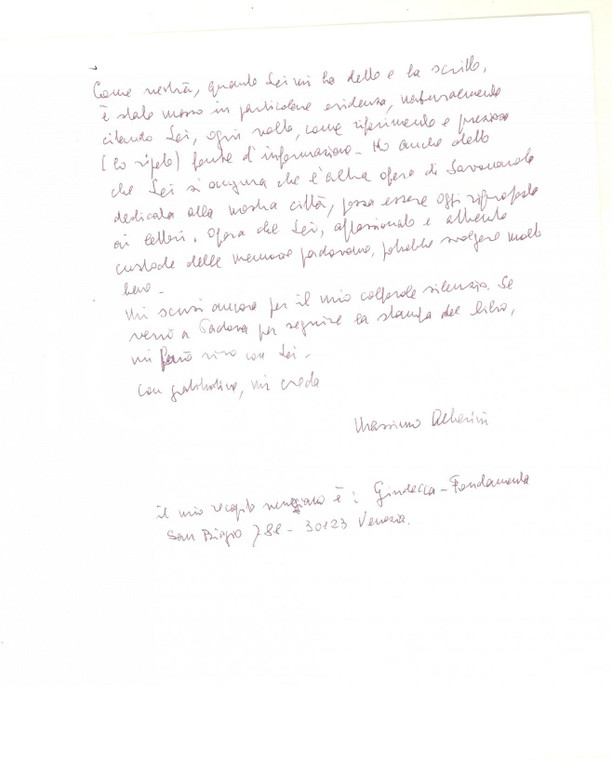 Come vedrà, quanto Lei mi ha detto e ha scritto,
è stato messo in particolare evidenza, naturalmente
citando Lei, ogni volta, come riferimento e preziosa
(lo ripeto) fonte d'informazione - Ho anche detto
che Lei si augura che l'altra opera di Savonarola
dedicata alla nostra città, possa essere oggi riproposta
ai lettori. Opera che Lei, appassionato e attento
custode delle memorie padovane, potrebbe svolgere molto
bene -
Mi scusi ancora per il mio colpevole silenzio. Se
verrò a Padova per seguire la stampa del libro,
mi farò vivo con Lei -
con gratitudine, mi creda
Massimo
il mio recapito veneziano è: Giudecca - Fondamenta
San Biagio 788 - 30123 Venezia.